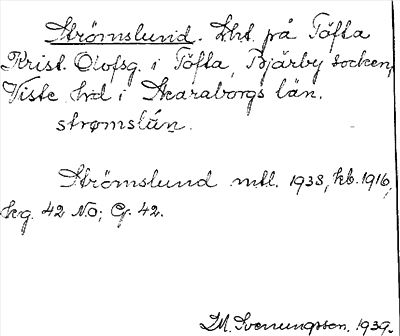 Strömslund. Lht. på Töfta
Krist. Olofsg. i Töfta, Bjärby socken,
Viste hrd i Skaraborgs län.
strømslún.
Strömslund mtl. 1938, kb. 1916,
hkg. 42 NO; G. 42.
M. Svenungsson. 1939.